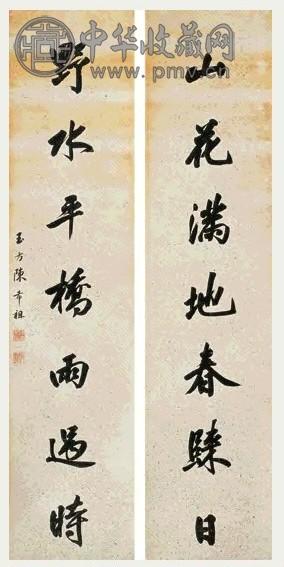 中华收藏网
www.pmv.cn
山花滿地春日
野水平橋雨過時
玉方陳希祖